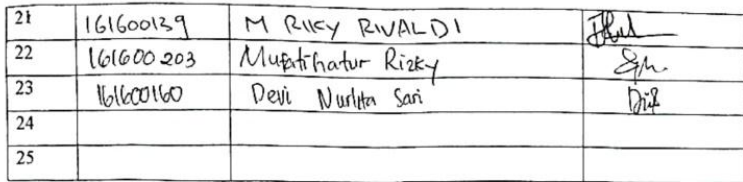 21 161600139 M RIKY RIVALDI
22 161600203 Mufatihatur Rizky
23 161600160 Devi Nurlita Sari
24
25